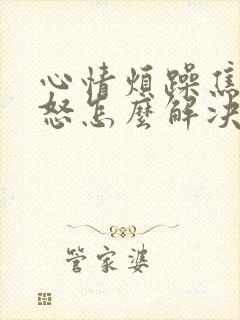 心情煩躁焦
怒怎麼解决
管家婆